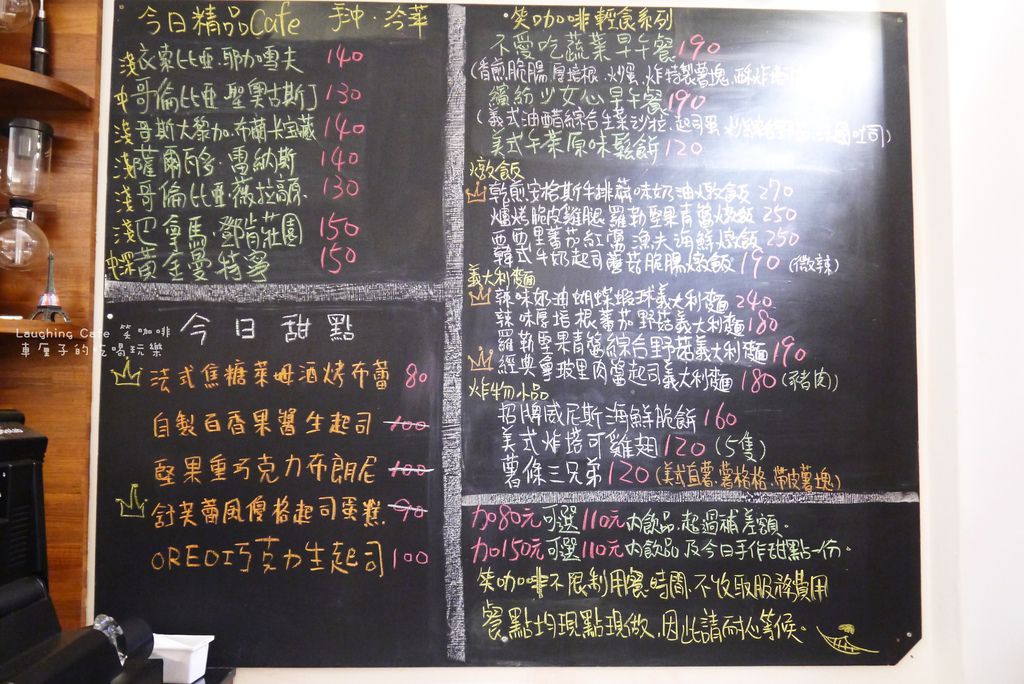 今日精品Cafe 手沖·冷萃
淺衣索比亞.耶加雪夫 140
中哥倫比亞.聖奧古斯丁 130
淺哥斯大黎加.布蘭卡寶藏 140
淺薩爾瓦多.雷納斯 140
淺哥倫比亞.薇拉.... 130
淺巴拿馬.鄧肯莊園 150
中深黃金曼特多 150
今日甜點
法式焦糖萊姆酒烤布蕾 80
自製百香果醬生起司 100
堅果重巧克力布朗尼 100
舒芙蕾風優格起司蛋糕 90
OREO巧克力生起司 100
·笑咖啡輕食系列
不愛吃蔬菜早午餐 190
(香煎脆腸.厚培根.炒蛋.炸特製薯塊.酥炸
繽紛少女心早午餐 190
(義式油醋綜合生菜沙拉.起司蛋 吐司)
美式午茶原味鬆餅 120
燉飯
乾煎安格斯牛排蒜味奶油燉飯 270
爐烤脆皮雞腿羅勒堅果青醬燉飯 250
西西里蕃茄紅醬漁夫海鮮燉飯 250
韓式牛奶起司蘑菇脆腸燉飯 190 (微辣)
義大利麵
辣味奶油蝴蝶蝦球義大利麵 240
辣味厚培根蕃茄野菇義大利麵 180
羅勒堅果青醬綜合野菇義大利麵 190
經典會波里肉醬起司義大利麵 180 (豬肉)
炸物小品
招牌威尼斯海鮮脆餅 160
美式炸塔可雞翅 120 (5隻)
薯條三兄弟 120 (美式直薯.薯格格.帶皮薯塊)
加80元可選110元內飲品.超過補差額。
加150元可選110元內飲品及今日手作甜點一份。
笑咖啡不限制用餐時間.不收取服務費用
餐點均現點現做.因此請耐心等候。
Laughing Cafe 笑咖啡
車厘子的吃喝玩樂